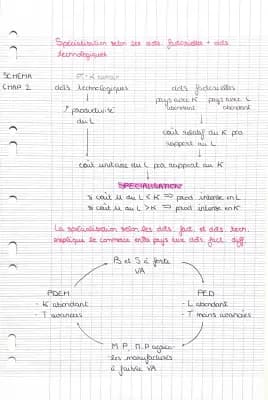 Spécialisation selon les dots factorielles + dots
technologiques
SCHÉMA
CHAP 2
dots technologiques
dots factorielles
pays avec K
abondant
pays avec L
abondant
↗ productivité
du L
coût relatif du K par
rapport au L
coût unitaire du L par rapport au K
SPÉCIALISATION
si coût u du L < K ⇒ prod intense en L
si coût u du L > K ⇒ prod intense en K
La spécialisation selon les dots fact. et dots techn.
explique le commerce entre pays aux dots fact diff.
B et S à forte
VA
PDEM
- K abondant
- T avancées
PED
- L abondant
- T moins avancées
M.P, Π.P agricoles
les manufacturés
à faible VA